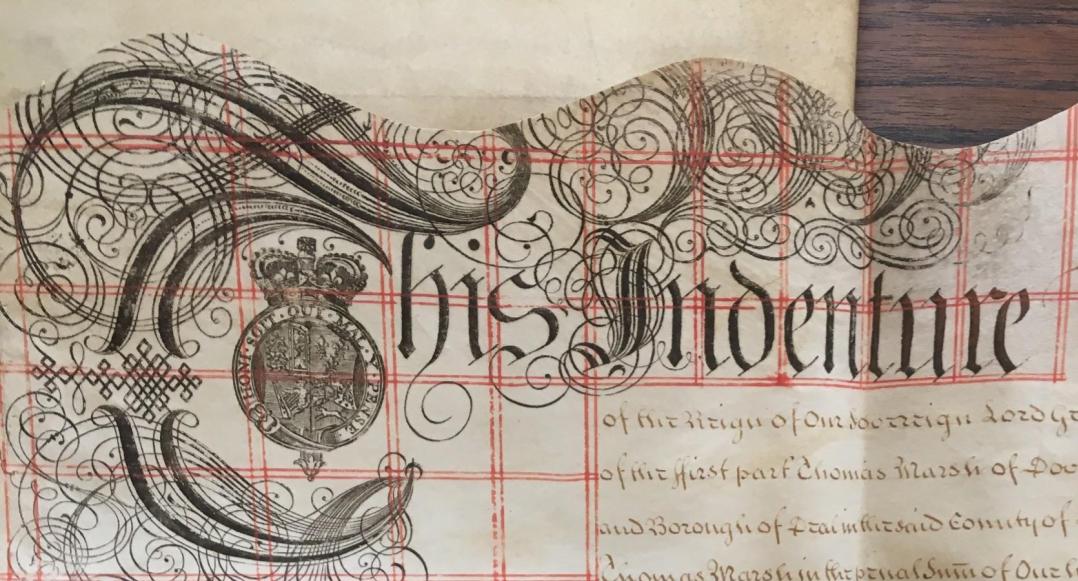 This Indenture
HONI·SOIT·QUI·MAL·Y·PENSE
of the Reign of Our Sovereign Lord
of the ffirst part Thomas Marsh of
and Borough of Deal in the said County of
Thomas Marsh in the penal Sum of